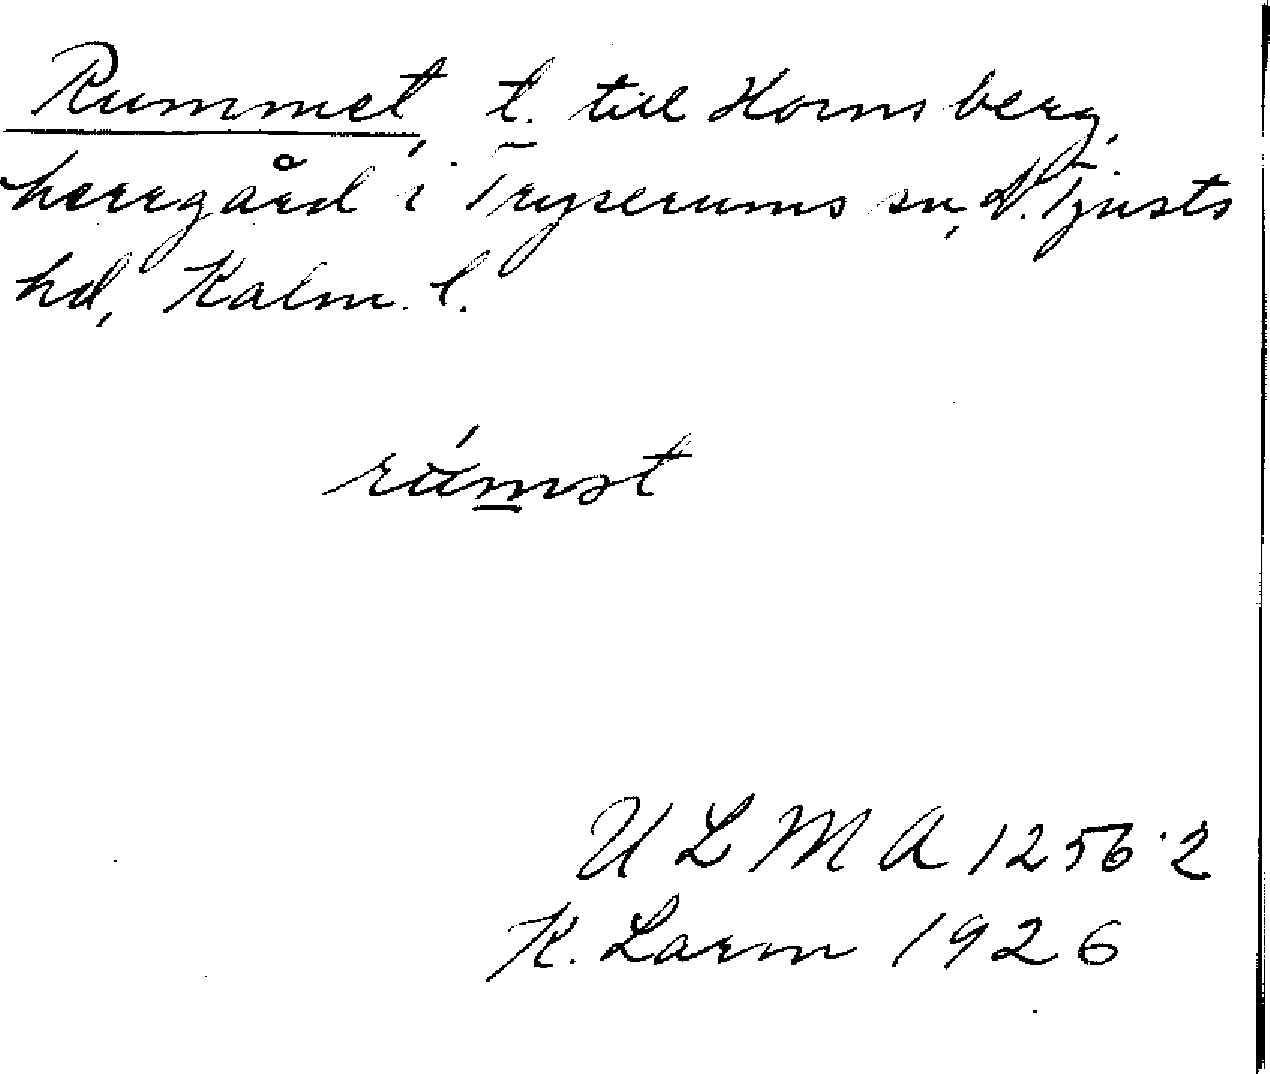 Rummet, t. till Hornsberg,
herrgård i Tryserums sn, N. Tjusts
hd, Kalm. l.
ULMA 1256:2
K. Larm 1926